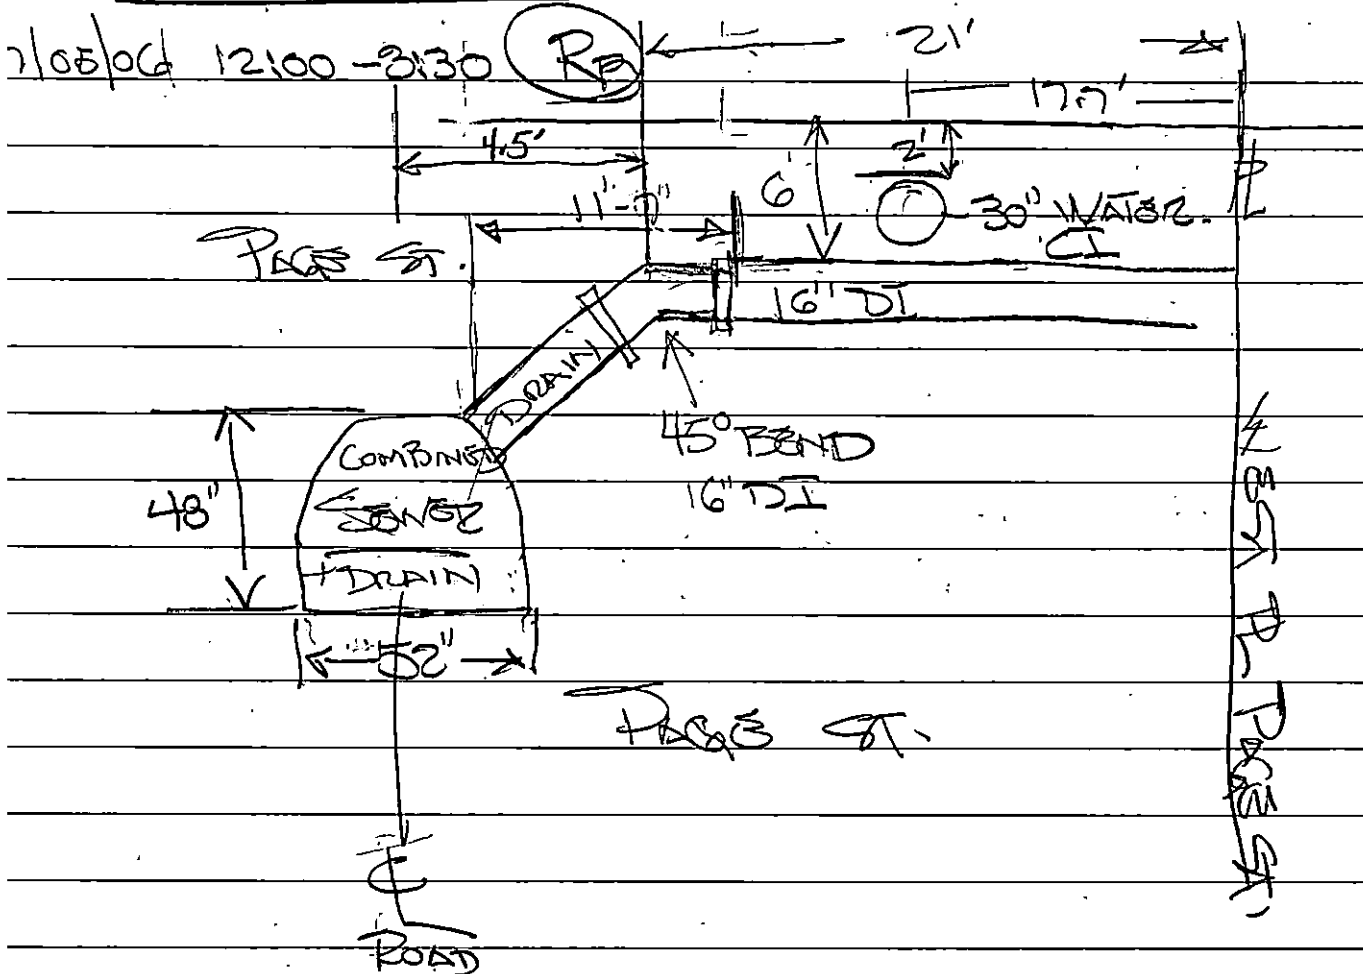 7/05/06 12:00 - 3:30 RB 21'
17.7'
4.5' 2'
11'-7" 6' 30" WATER.
CI
PAGE ST.
16" DI
DRAIN
45° BEND
16" DI
COMBINED
SEWER
+ DRAIN
48"
52"
PAGE ST.
℄
ROAD
PAGE ST.